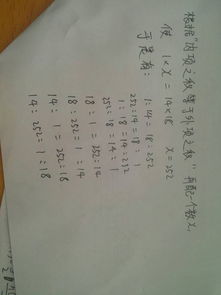 根据"内项之积等于外项之积"再配一个数X,
使 1×X = 14×18 X=252
于是有:
1:14 = 18:252
252:14 = 18:1
1:18 = 14:252
252:18 = 14:1
18:1 = 252:14
18:252 = 1:14
14:1 = 252:18
14:252 = 1:18